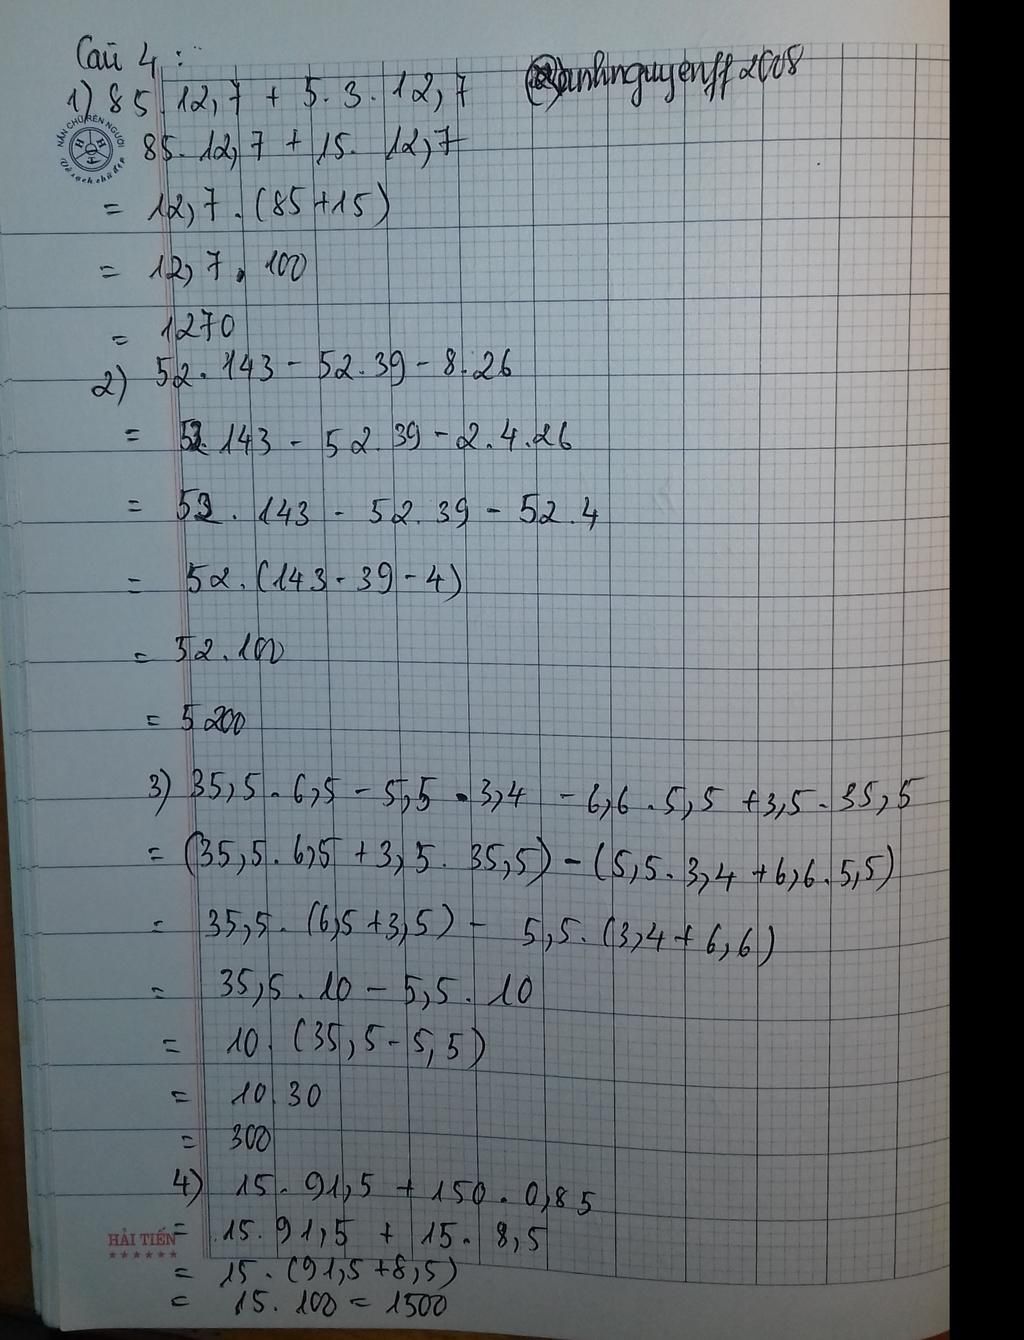 Câu 4:
1) 85.12,7 + 5.3.12,7
anhnguyenff2008
NẮN CHỮ RÈN NGƯỜI
Vở sạch chữ đẹp
85.12,7 + 15.12,7
= 12,7.(85+15)
= 12,7.100
= 1270
2) 52.143 - 52.39 - 8.26
= 52.143 - 52.39 - 2.4.26
= 52.143 - 52.39 - 52.4
= 52.(143-39-4)
= 52.100
= 5200
3) 35,5.6,5 - 5,5.3,4 - 6,6.5,5 + 3,5.35,5
= (35,5.6,5 + 3,5.35,5) - (5,5.3,4 + 6,6.5,5)
= 35,5.(6,5+3,5) - 5,5.(3,4+6,6)
= 35,5.10 - 5,5.10
= 10.(35,5-5,5)
= 10.30
= 300
4) 15.91,5 + 150.0,85
HẢI TIẾN
= 15.91,5 + 15.8,5
= 15.(91,5+8,5)
= 15.100 = 1500